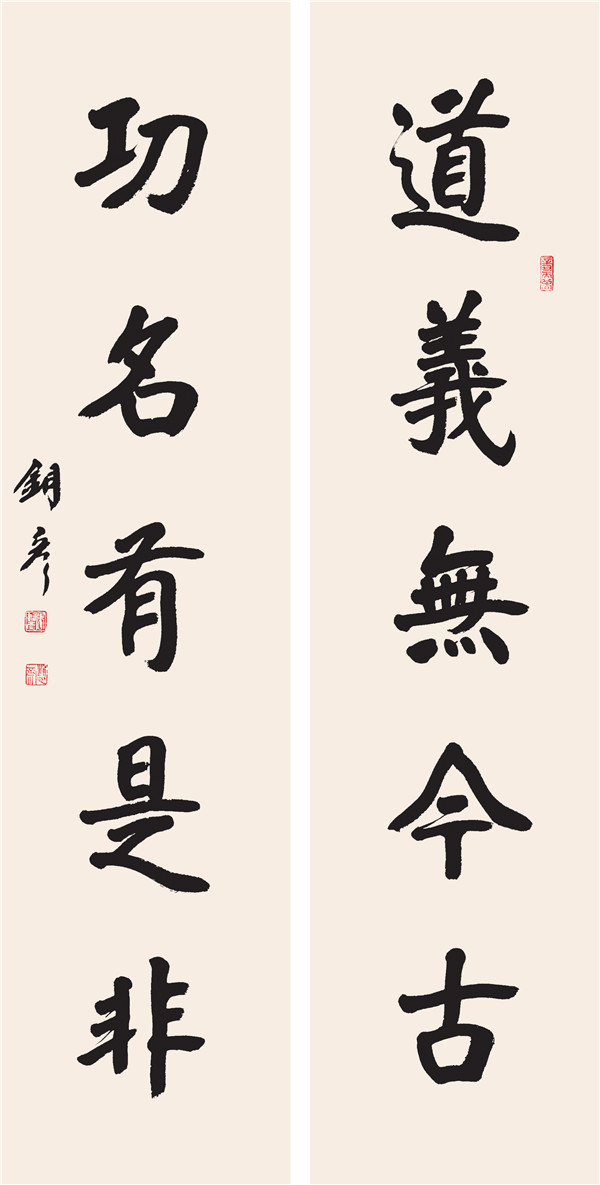 道義無今古
功名有是非
銷彥